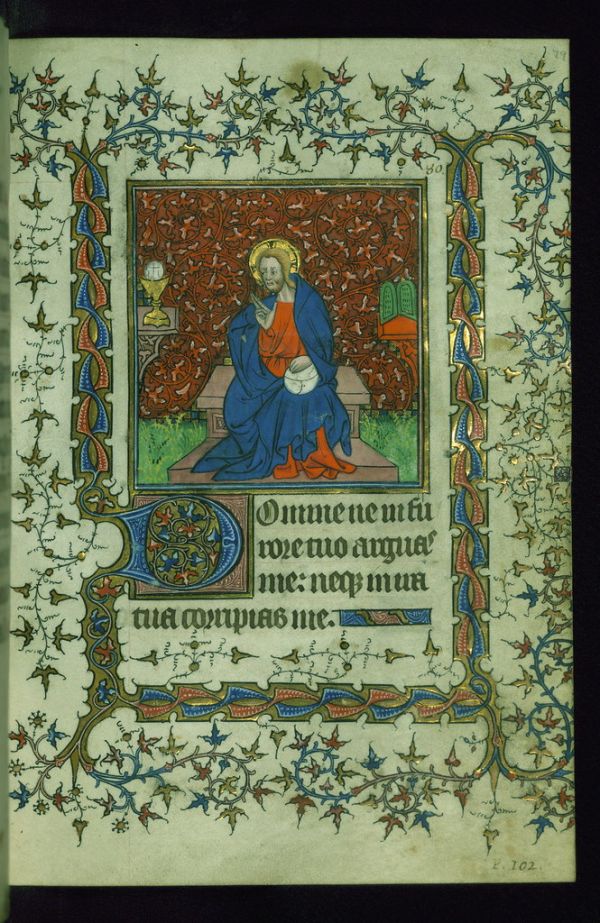 79
80.
Domine ne in fu
rore tuo arguas
me: neqz in ira
tua corripias me.
E. 102.